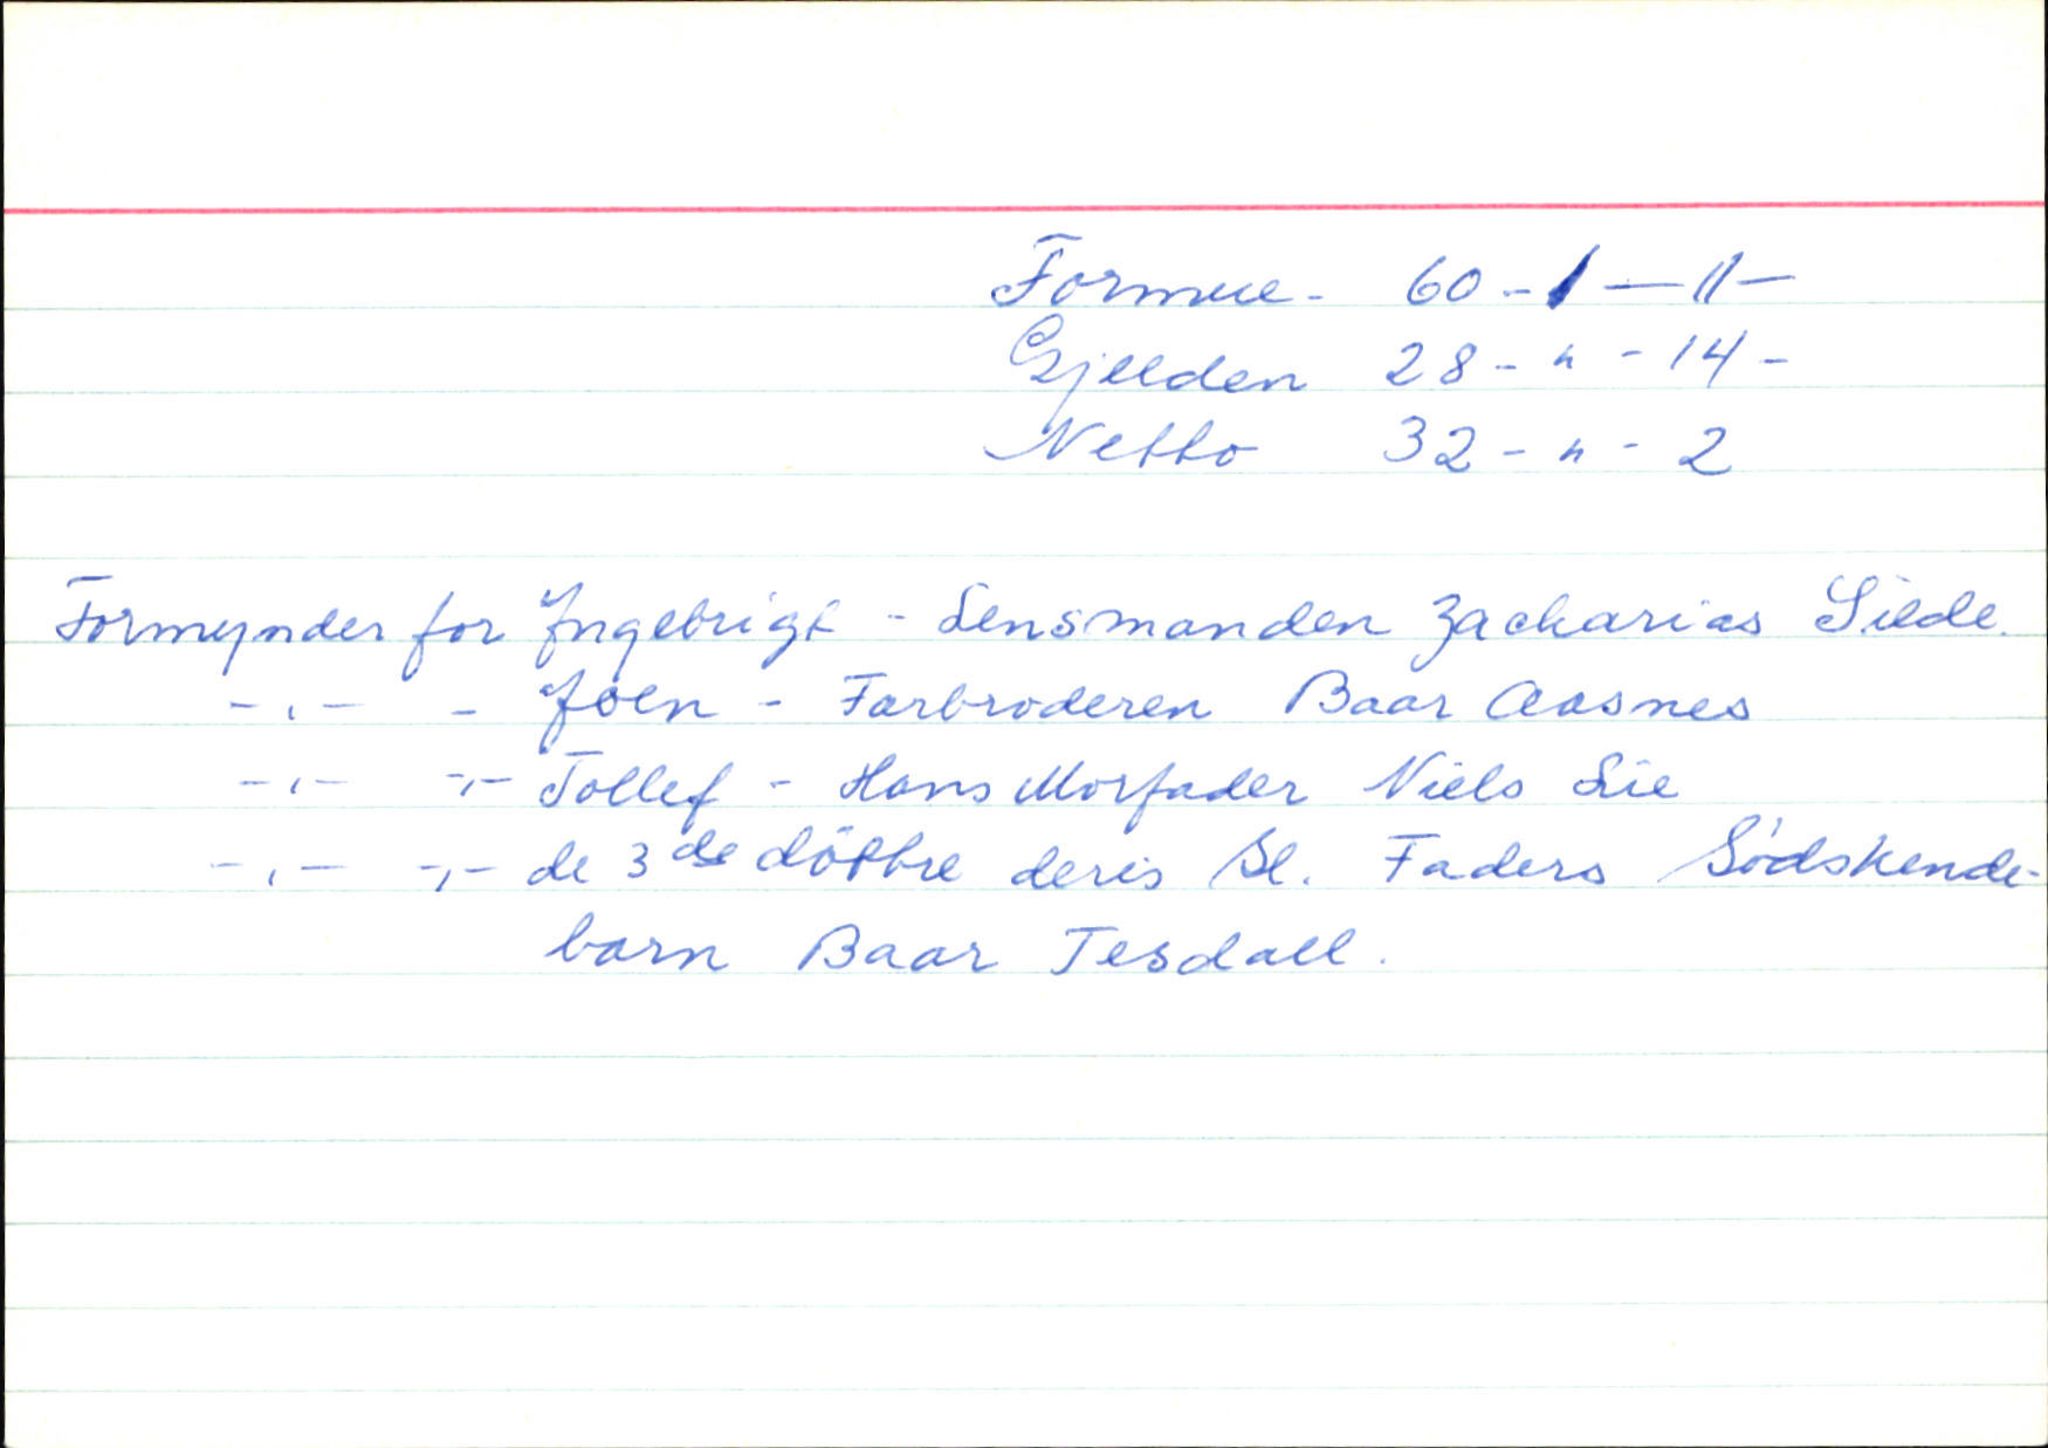 Formue - 60 - 1 - 11 -
Gjelden 28 - " - 14 -
Netto 32 - " - 2
Formynder for Ingebrigt - Lensmanden Zacharias Silde.
- , - - Joen - Farbroderen Baar Aasnes
- , - - , - Tollef - Hans Morfader Niels Lie
- , - - , - de 3 de döttre deris Sl. Faders Södskende-
barn Baar Tesdall.